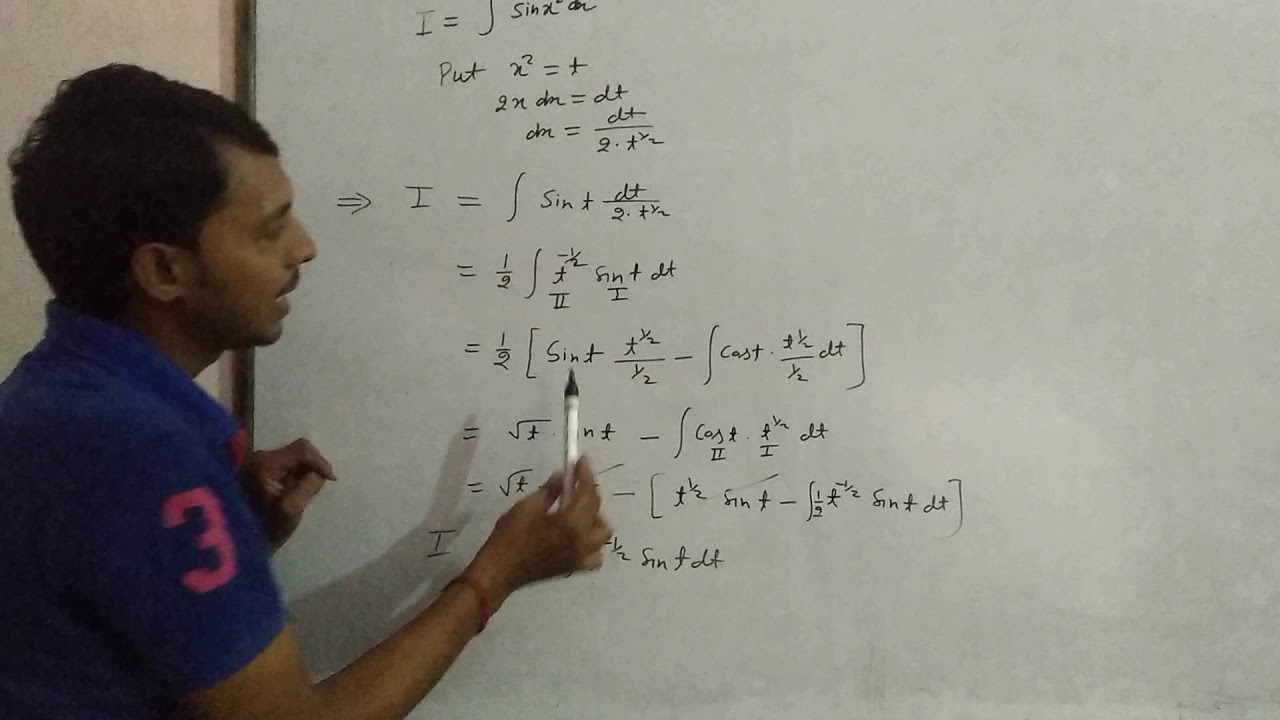 I = ∫ sin x² dx
Put x² = t
2x dx = dt
dx = dt / 2·t^½
⇒ I = ∫ sin t dt / 2·t^½
= ½ ∫ t^-½ sin t dt
II I
= ½ [ sin t t^½ / ½ − ∫ cos t · t^½ / ½ dt ]
= √t · nt − ∫ cos t · t^½ dt
II I
= √t − [ t^½ sin t − ∫ ½ t^-½ sin t dt ]
I -½ sin t dt
3